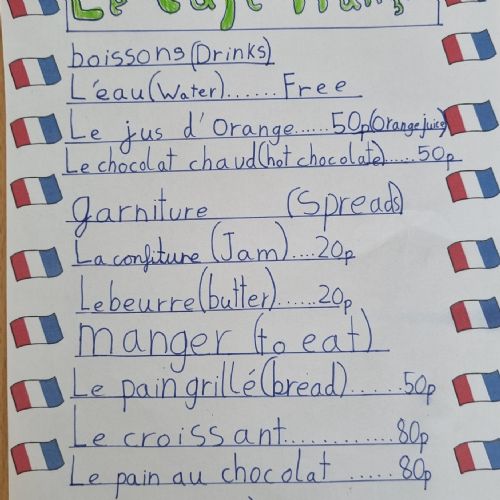 Le Café
boissons (Drinks)
L'eau (Water)......Free
Le jus d'Orange.....50p (Orange juice)
Le chocolat chaud (hot chocolate).....50p
garniture (Spreads)
La confiture (Jam)....20p
Le beurre (butter)......20p
manger (to eat)
Le pain grillé (bread)......50p
Le croissant............80p
Le pain au chocolat .....80p